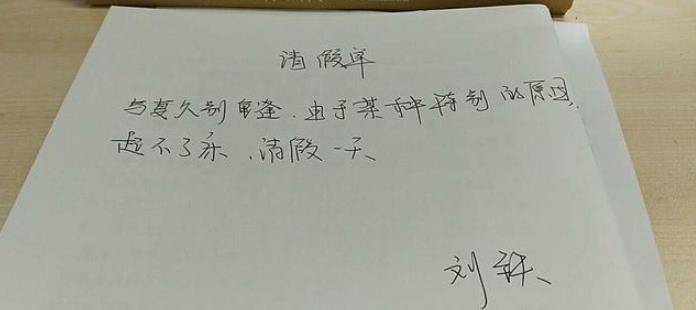 请假单
与妻久别重逢、由于某种特别的原因,
起不了床、请假一天、
刘